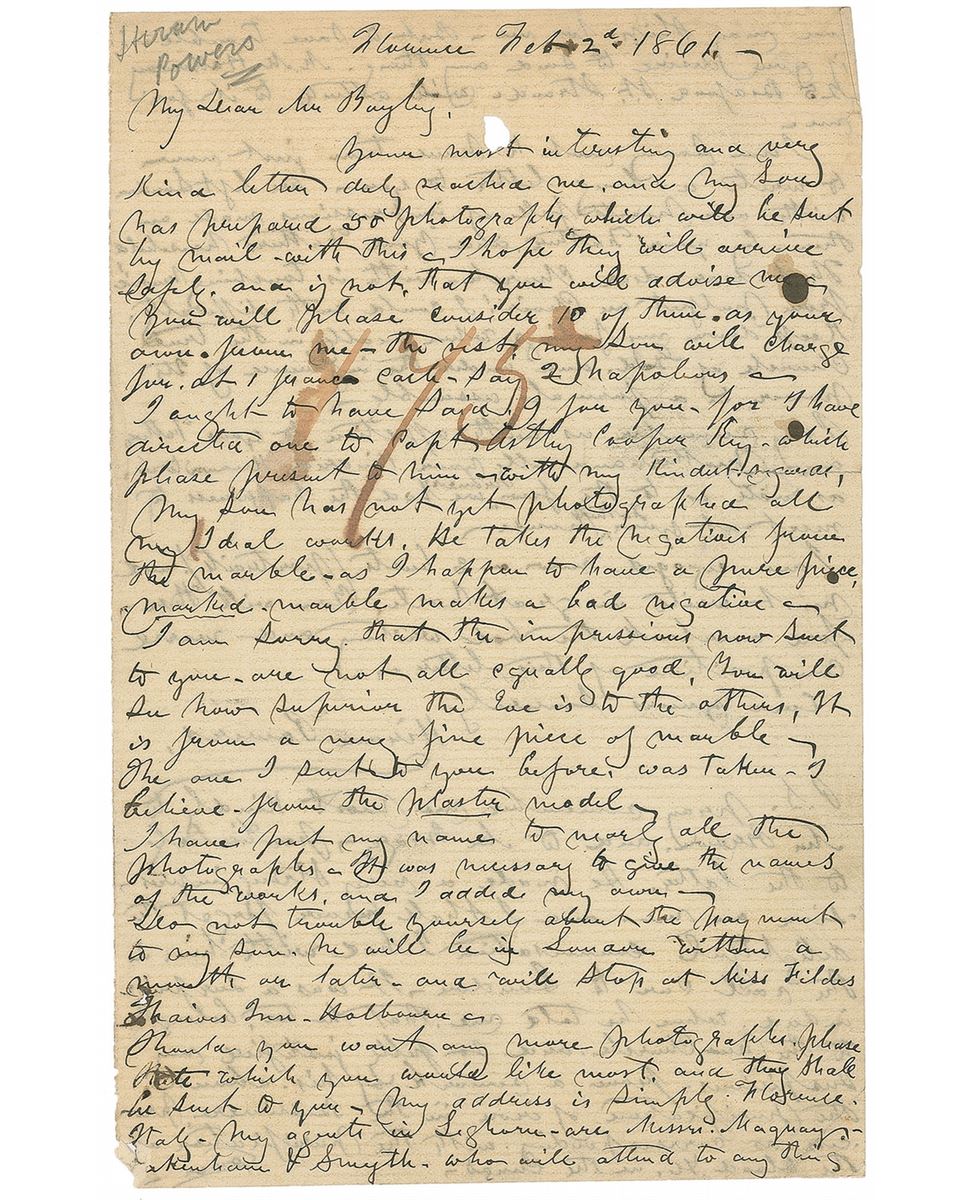 Hiram
Powers
Florence Feb 2d 1861. –
My Dear Mr Bayley,
Your most interesting and very
kind letter duly reached me, and my Son
has prepared 50 photographs, which will be sent
by mail - with this – I hope they will arrive
safely, and if not, that you will advise me –
You will please consider 10 of them, as your
own - from me - the rest, my Son will charge
for, at 1 franc each - say 2 Napoleons –
I ought to have said, 9 for you - for I have
directed one to Capt Astley Cooper Key - which
please present to him - with my kindest regards,
My Son has not yet photographed all
my Ideal works. He takes the negatives from
the marble - as I happen to have a pure piece,
marked - marble makes a bad negative –
I am sorry, that the impressions now sent
to you - are not all equally good, You will
see how superior the Eve is to the others, It
is from a very fine piece of marble –
The one I sent to you before, was taken - I
believe - from the plaster model –
I have put my name to nearly all the
photographs – It was necessary to give the names
of the works, and I added my own –
Do not trouble yourself about the payment
to my son. he will be in London within a
month or later - and will stop at Miss Fildes
Thaives Inn - Holbourn –
Should you want any more photographs, please
state which you would like most, and they shall
be sent to you - My address is simply Florence.
Italy - My agents in Leghorn - are Messrs. Maquay -
akenham & Smyth - who will attend to any thing
475